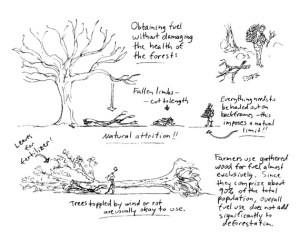 Obtaining fuel
without damaging
the health of
the forests
Fallen limbs—
cut to length
Everything needs to
be hauled out on
backframes—this
imposes a natural
limit!!
Natural attrition!!
Leave
for
fertilizer!
Trees toppled by wind or rot
are usually okay to use.
Farmers use gathered
wood for fuel almost
exclusively. Since
they comprise about
90% of the total
population, overall
fuel use does not add
significantly to
deforestation.